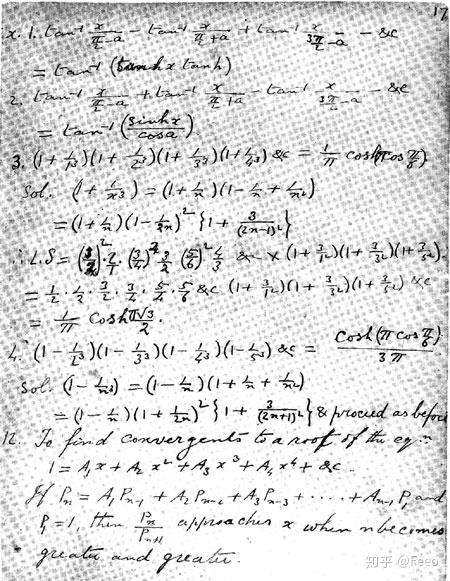 17
x. 1. tan⁻¹ x/(π/2-a) - tan⁻¹ x/(π/2+a) + tan⁻¹ x/(3π/2-a) - &c
= tan⁻¹ (tanh x tan a)
2. tan⁻¹ x/(π/2-a) + tan⁻¹ x/(π/2+a) - tan⁻¹ x/(3π/2-a) - &c
= tan⁻¹ (sinh x/cos a).
3. (1+1/1³)(1+1/2³)(1+1/3³)(1+1/4³) &c = 1/π cosh(π cos π/6)
Sol. (1+1/n³) = (1+1/n)(1-1/n+1/n²)
= (1+1/n)(1-1/2n)² {1+3/(2n-1)²}
∴ L.S = (1/2)² 2/1 (3/4)² 3/2 (5/6)² 4/3 &c × (1+3/1²)(1+3/3²)(1+3/5²)
= 1/2 · 1/2 · 3/2 · 3/4 · 5/4 · 5/6 &c (1+3/1²)(1+3/3²)(1+3/5²) &c
= 1/π Cosh π√3/2.
4. (1-1/2³)(1-1/3³)(1-1/4³)(1-1/5³) &c = Cosh(π cos π/6)/3π
Sol. (1-1/n³) = (1-1/n)(1+1/n+1/n²)
= (1-1/n)(1+1/2n)² {1+3/(2n+1)²} & proceed as before
12. To find convergents to a root of the eqⁿ.
1 = A₁x + A₂x² + A₃x³ + A₄x⁴ + &c.
If Pₙ = A₁Pₙ₋₁ + A₂Pₙ₋₂ + A₃Pₙ₋₃ + ..... + Aₙ₋₁P₁ and
P₁ = 1, then Pₙ/Pₙ₊₁ approaches x when n becomes
greater and greater.
知乎 @Feeo